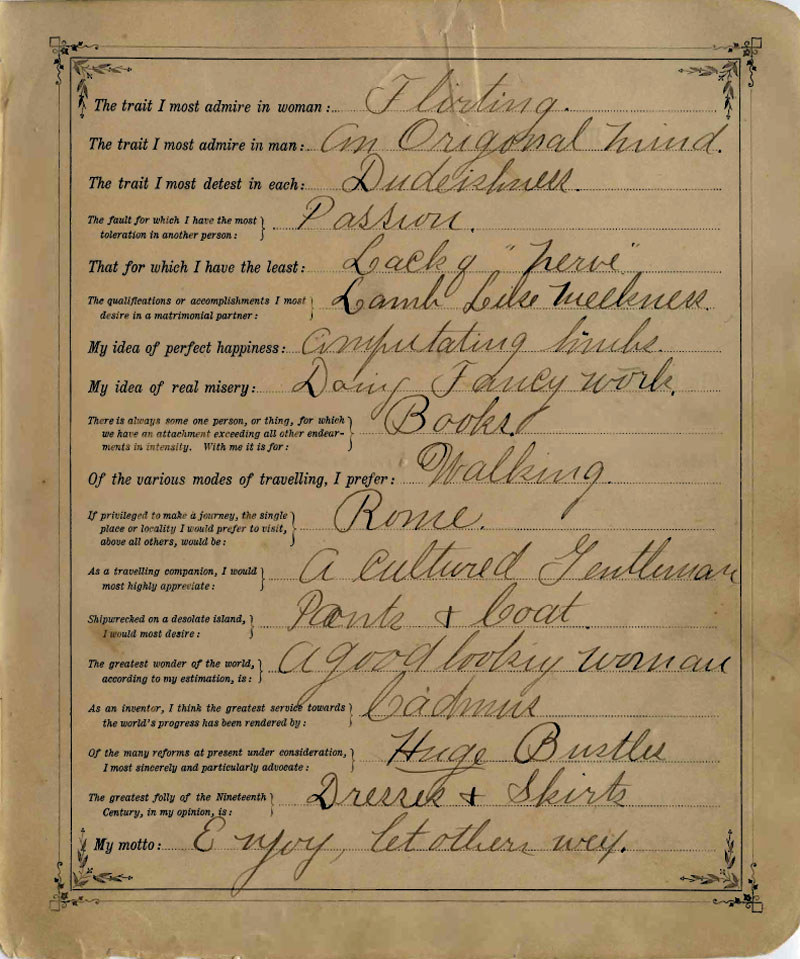 The trait I most admire in woman: Flirting.
The trait I most admire in man: An Origonal mind.
The trait I most detest in each: Dudeishness.
The fault for which I have the most
toleration in another person: Passion.
That for which I have the least: Lack of "nerve"
The qualifications or accomplishments I most
desire in a matrimonial partner: Lamb Like Meekness.
My idea of perfect happiness: Amputating limbs.
My idea of real misery: Doing Fancy work.
There is always some one person, or thing, for which
we have an attachment exceeding all other endear-
ments in intensity. With me it is for: Books.
Of the various modes of travelling, I prefer: Walking.
If privileged to make a journey, the single
place or locality I would prefer to visit,
above all others, would be: Rome.
As a travelling companion, I would
most highly appreciate: A cultured Gentleman
Shipwrecked on a desolate island,
I would most desire: Pants & Coat.
The greatest wonder of the world,
according to my estimation, is: A good looking woman
As an inventor, I think the greatest service towards
the world's progress has been rendered by: Cadmus
Of the many reforms at present under consideration,
I most sincerely and particularly advocate: Huge Bustles
The greatest folly of the Nineteenth
Century, in my opinion, is: Dresses & Skirts
My motto: Enjoy, let others wey.